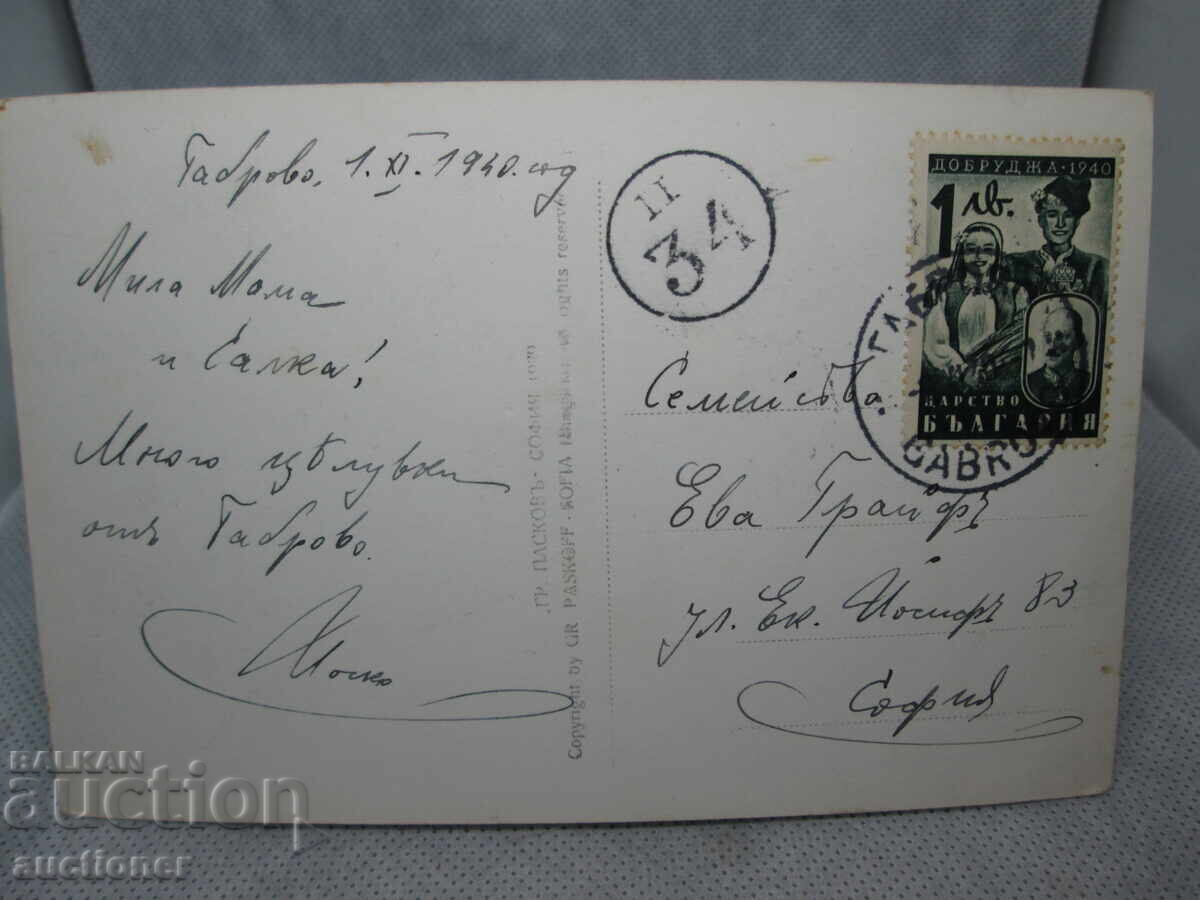 Габрово, 1. XI. 1940. год
Мила Мама
и Салка!
Много цѣлувки
отъ Габрово.
ГР. ПАСКОВЪ - СОФИЯ 1939
Copyright by GR PASKOFF - SOFIA rights reserve
II
34
ДОБРУДЖА · 1940
1 лв.
ЦАРСТВО
БЪЛГАРИЯ
GABRO
Семейства
Ева Грайфъ
ул. Ек. Йосифъ 83
София
BALKAN
auction
auctioner